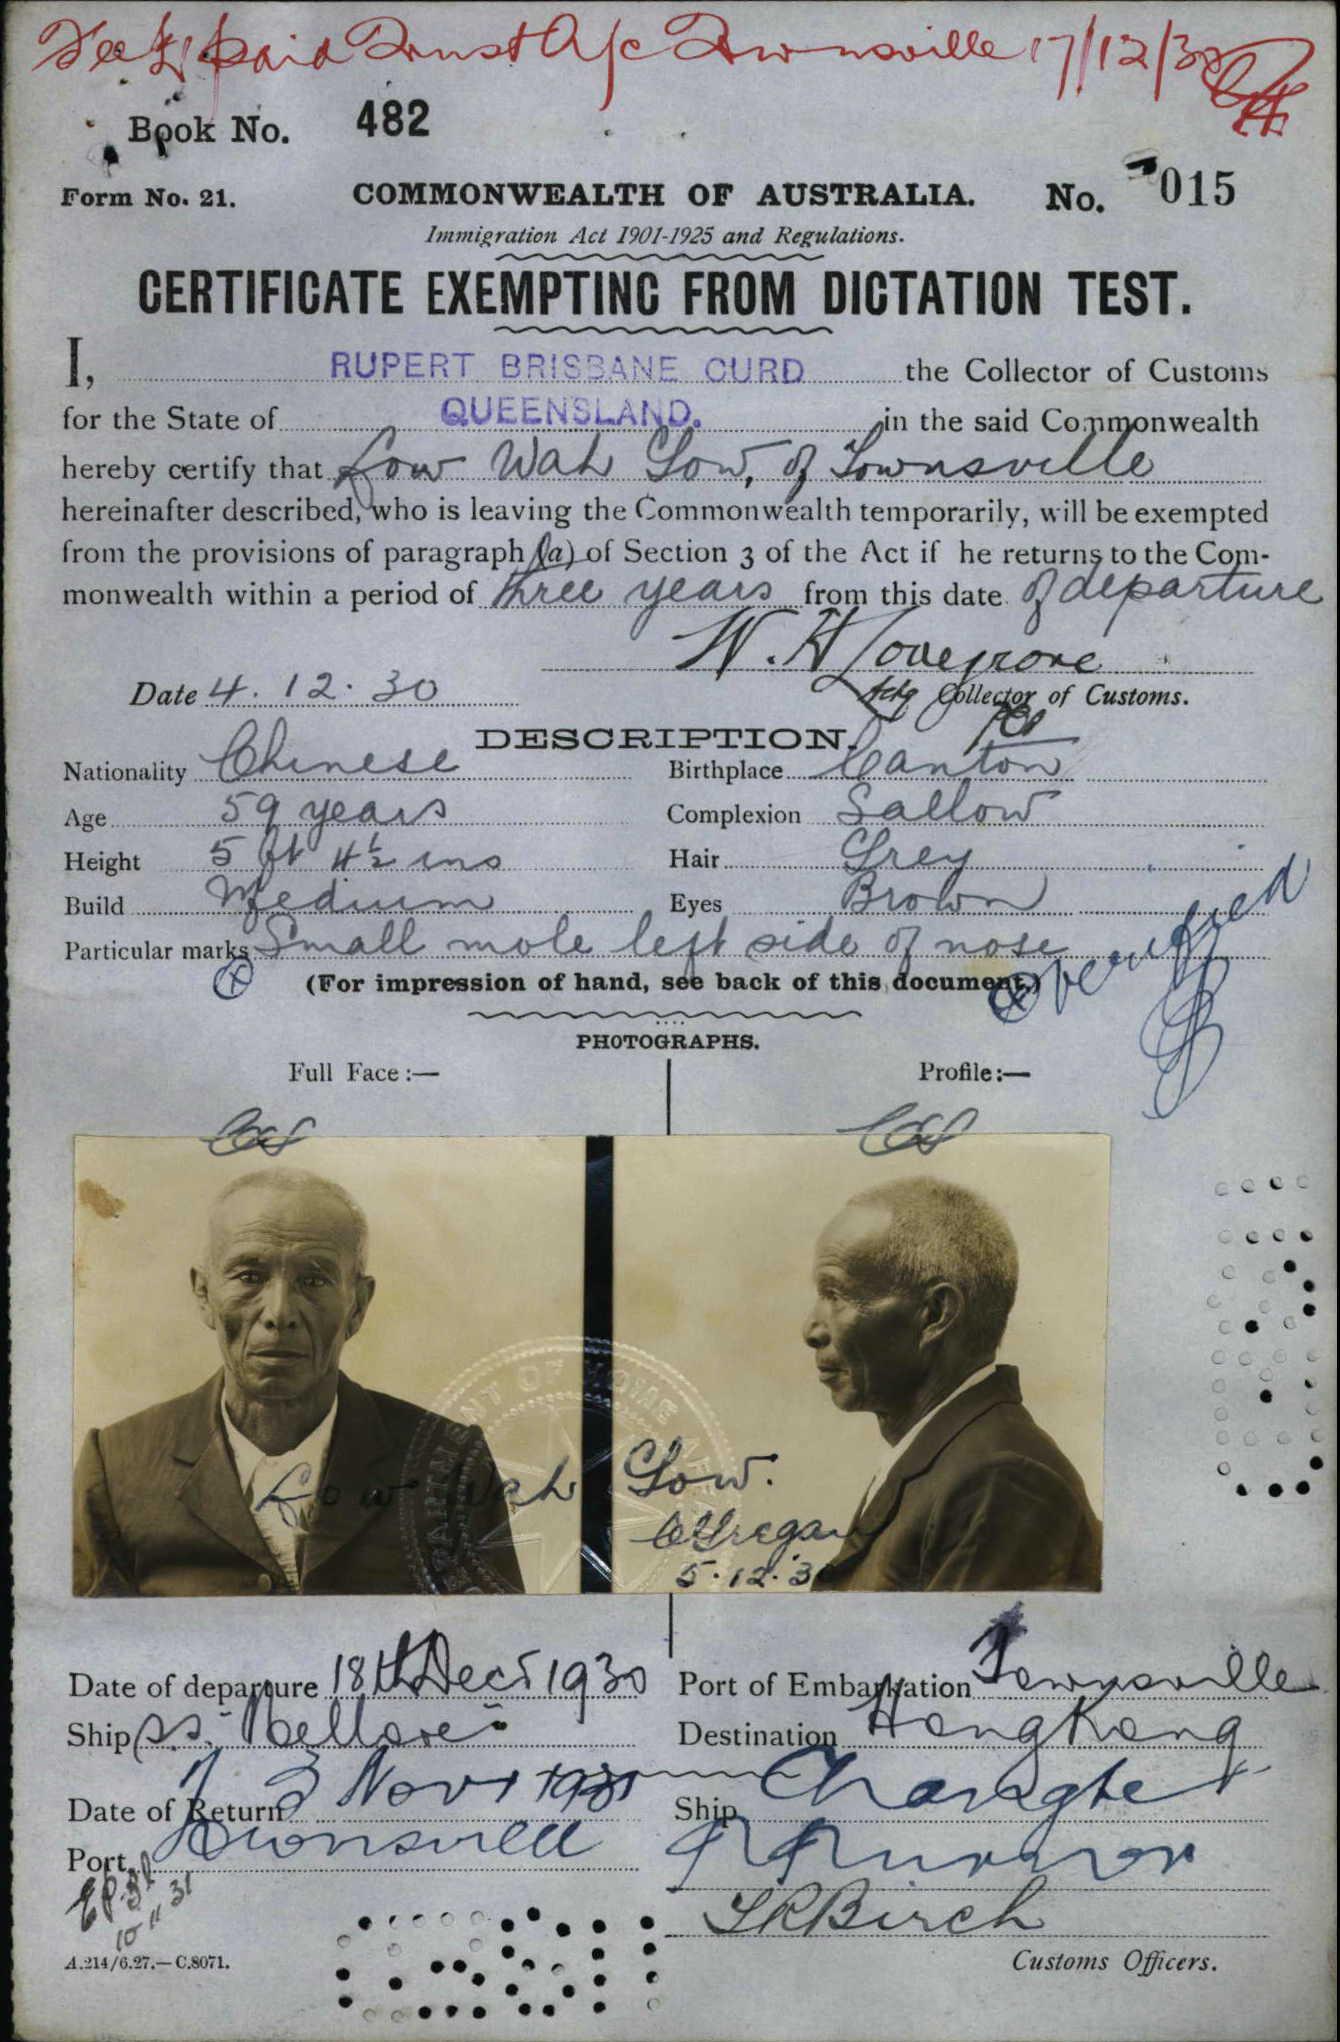 Fee £1 paid Trust A/c Townsville 17/12/30
Book No. 482
Form No. 21. COMMONWEALTH OF AUSTRALIA. No. 015
Immigration Act 1901-1925 and Regulations.
CERTIFICATE EXEMPTING FROM DICTATION TEST.
I, RUPERT BRISBANE CURD the Collector of Customs
for the State of QUEENSLAND. in the said Commonwealth
hereby certify that Low Wah Gow, of Townsville
hereinafter described, who is leaving the Commonwealth temporarily, will be exempted
from the provisions of paragraph (a) of Section 3 of the Act if he returns to the Com-
monwealth within a period of three years from this date of departure
W. H Lovegrove
Date 4. 12. 30 Actg Collector of Customs.
DESCRIPTION.
Nationality Chinese Birthplace Canton
Age 59 years Complexion Sallow
Height 5 ft 4½ ins Hair Grey
Build Medium Eyes Brown
Particular marks Small mole left side of nose
(For impression of hand, see back of this document.)
verified
PHOTOGRAPHS.
Full Face :— Profile :—
DEPARTMENT OF HOME AFFAIRS
Low Wah Gow.
5.12.30
Date of departure 18th Decr 1930 Port of Embarkation Townsville
Ship s.s. Nellore Destination Hong Kong
Date of Return 3 Nov 1931 Ship Changte
Port Townsville
10 11 31
L R Birch
A.214/6.27.—C.8071. Customs Officers.